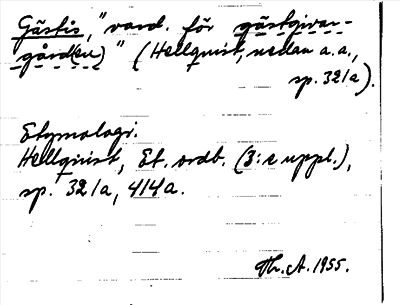 Gästis, "vard. för gästgivar-
gård(en)" (Hellquist, nedan a.a.,
sp. 321a).
Etymologi.
Hellquist, Et. ordb. (3:e uppl.),
sp. 321a, 414a.
Th. A. 1955.